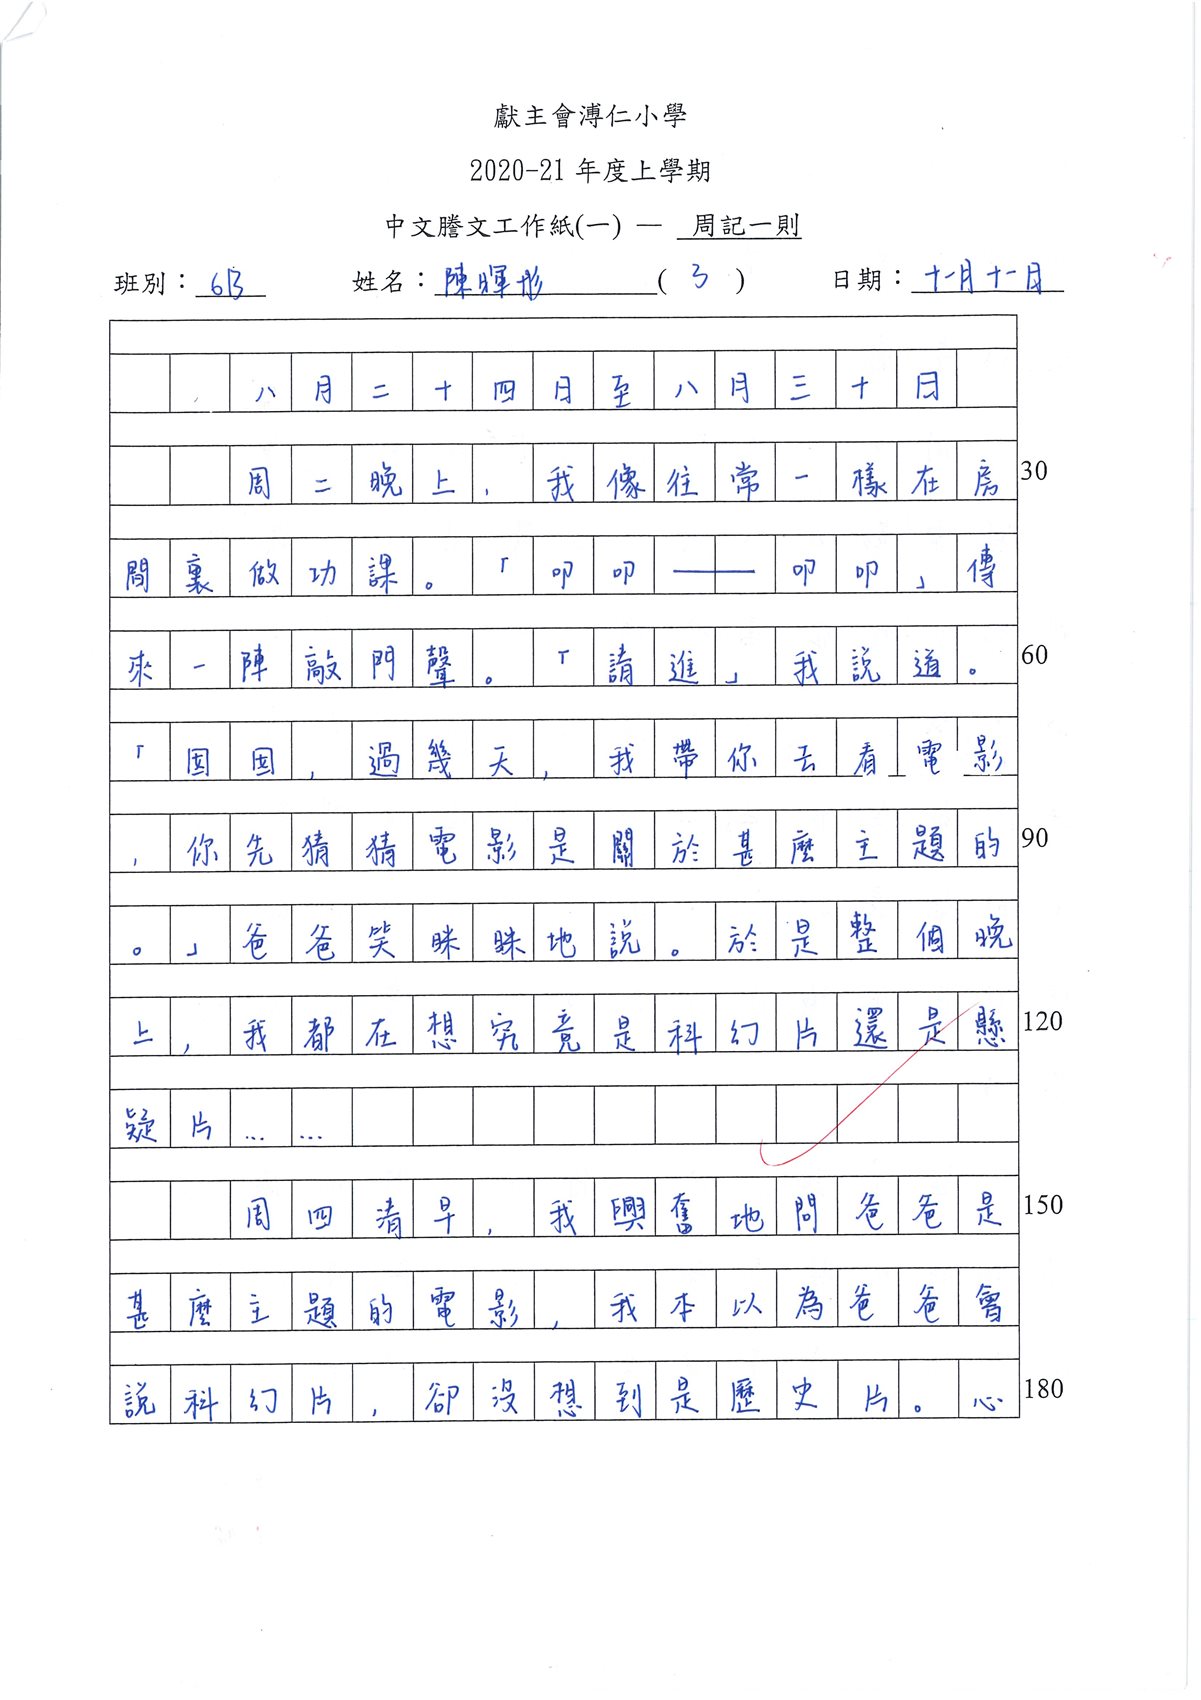 獻主會溥仁小學
2020-21 年度上學期
中文謄文工作紙(一) — 周記一則
班別：6B 姓名：陳暉彤 (3) 日期：十一月十一日
八月二十四日至八月三十日
周二晚上，我像往常一樣在房 30
間裏做功課。「叩叩——叩叩」傳
來一陣敲門聲。「請進」我說道。 60
「囡囡，過幾天，我帶你去看電影
，你先猜猜電影是關於甚麼主題的 90
。」爸爸笑眯眯地說。於是整個晚
上，我都在想究竟是科幻片還是懸 120
疑片……
周四清早，我興奮地問爸爸是 150
甚麼主題的電影，我本以為爸爸會
說科幻片，卻沒想到是歷史片。心 180